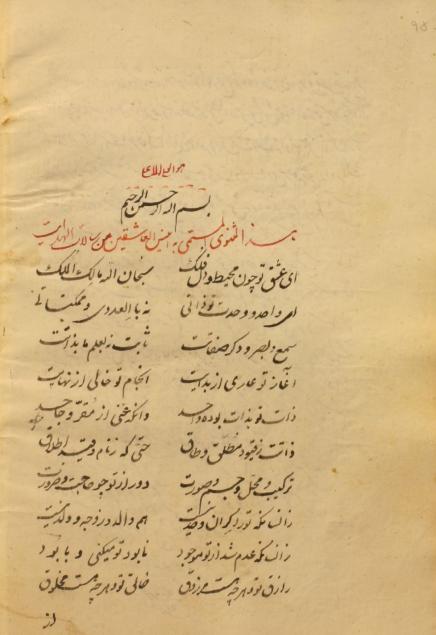 ۹۵
بسم الله الرحمن الرحیم
هذا المثنوی المسمی به انیس العاشقین من رسالات
ای عشق تو چون محیط و دل فلک سبحان الله مالک الملک
ای واحد و وحدت تو ذاتی نه بالعددی و
سمع و بصر و دکر صفاتت ثابت نه بعلم ما بذاتت
آغاز تو عاری از بدایت انجام تو خالی از نهایت
ذات تو بذات بوده واحد وانکه غنی از مقر و جاحد
ذاتت ز قیود مطلق و طاق حتی که ز نام و قید اطلاق
ترکیب و محل و جسم و صورت دور از تو چو حاجت و ضرورت
زانکه هم والد و زوجه و ولد نیست
زانکه عدم شد از تو موجود نابود تو میکنی و بابود
رازق تو و هرچه هست مرزوق خالق تو و هرچه هست مخلوق
از